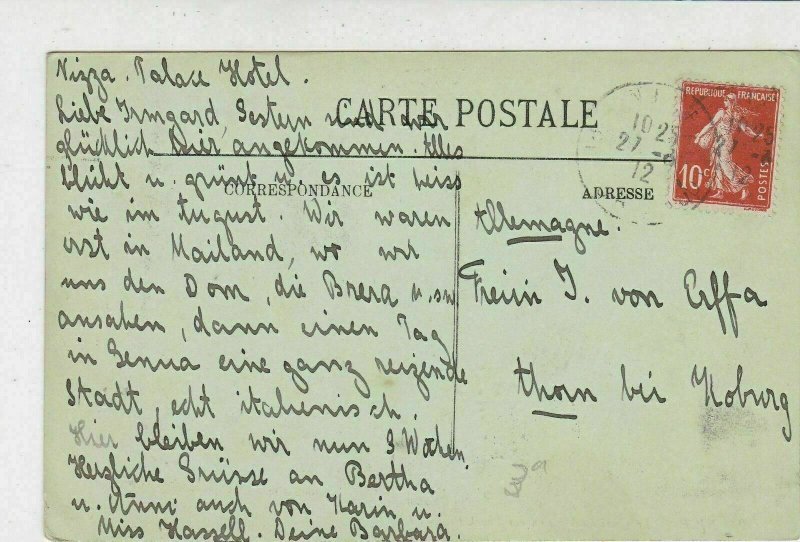 Nizza. Palace Hotel.
Liebe Irmgard, Gestern sind wir
glücklich hier angekommen. Alles
blüht u. grünt u. es ist heiss
wie im August. Wir waren
erst in Mailand, wo wir
uns den Dom, die Brera u.sw
ansahen, dann einen Tag
in Genua eine ganz reizende
Stadt, echt italienisch.
Hier bleiben wir nun 3 Wochen.
Herzliche Grüsse an Bertha
u. Anni auch von Karin u.
Miss Hassell. Deine Barbara.
CARTE POSTALE
CORRESPONDANCE
ADRESSE
Allemagne.
Freiin I. von Erffa
Ahorn bei Koburg
RÉPUBLIQUE FRANÇAISE
10c
POSTES
NICE
10 25
27
12